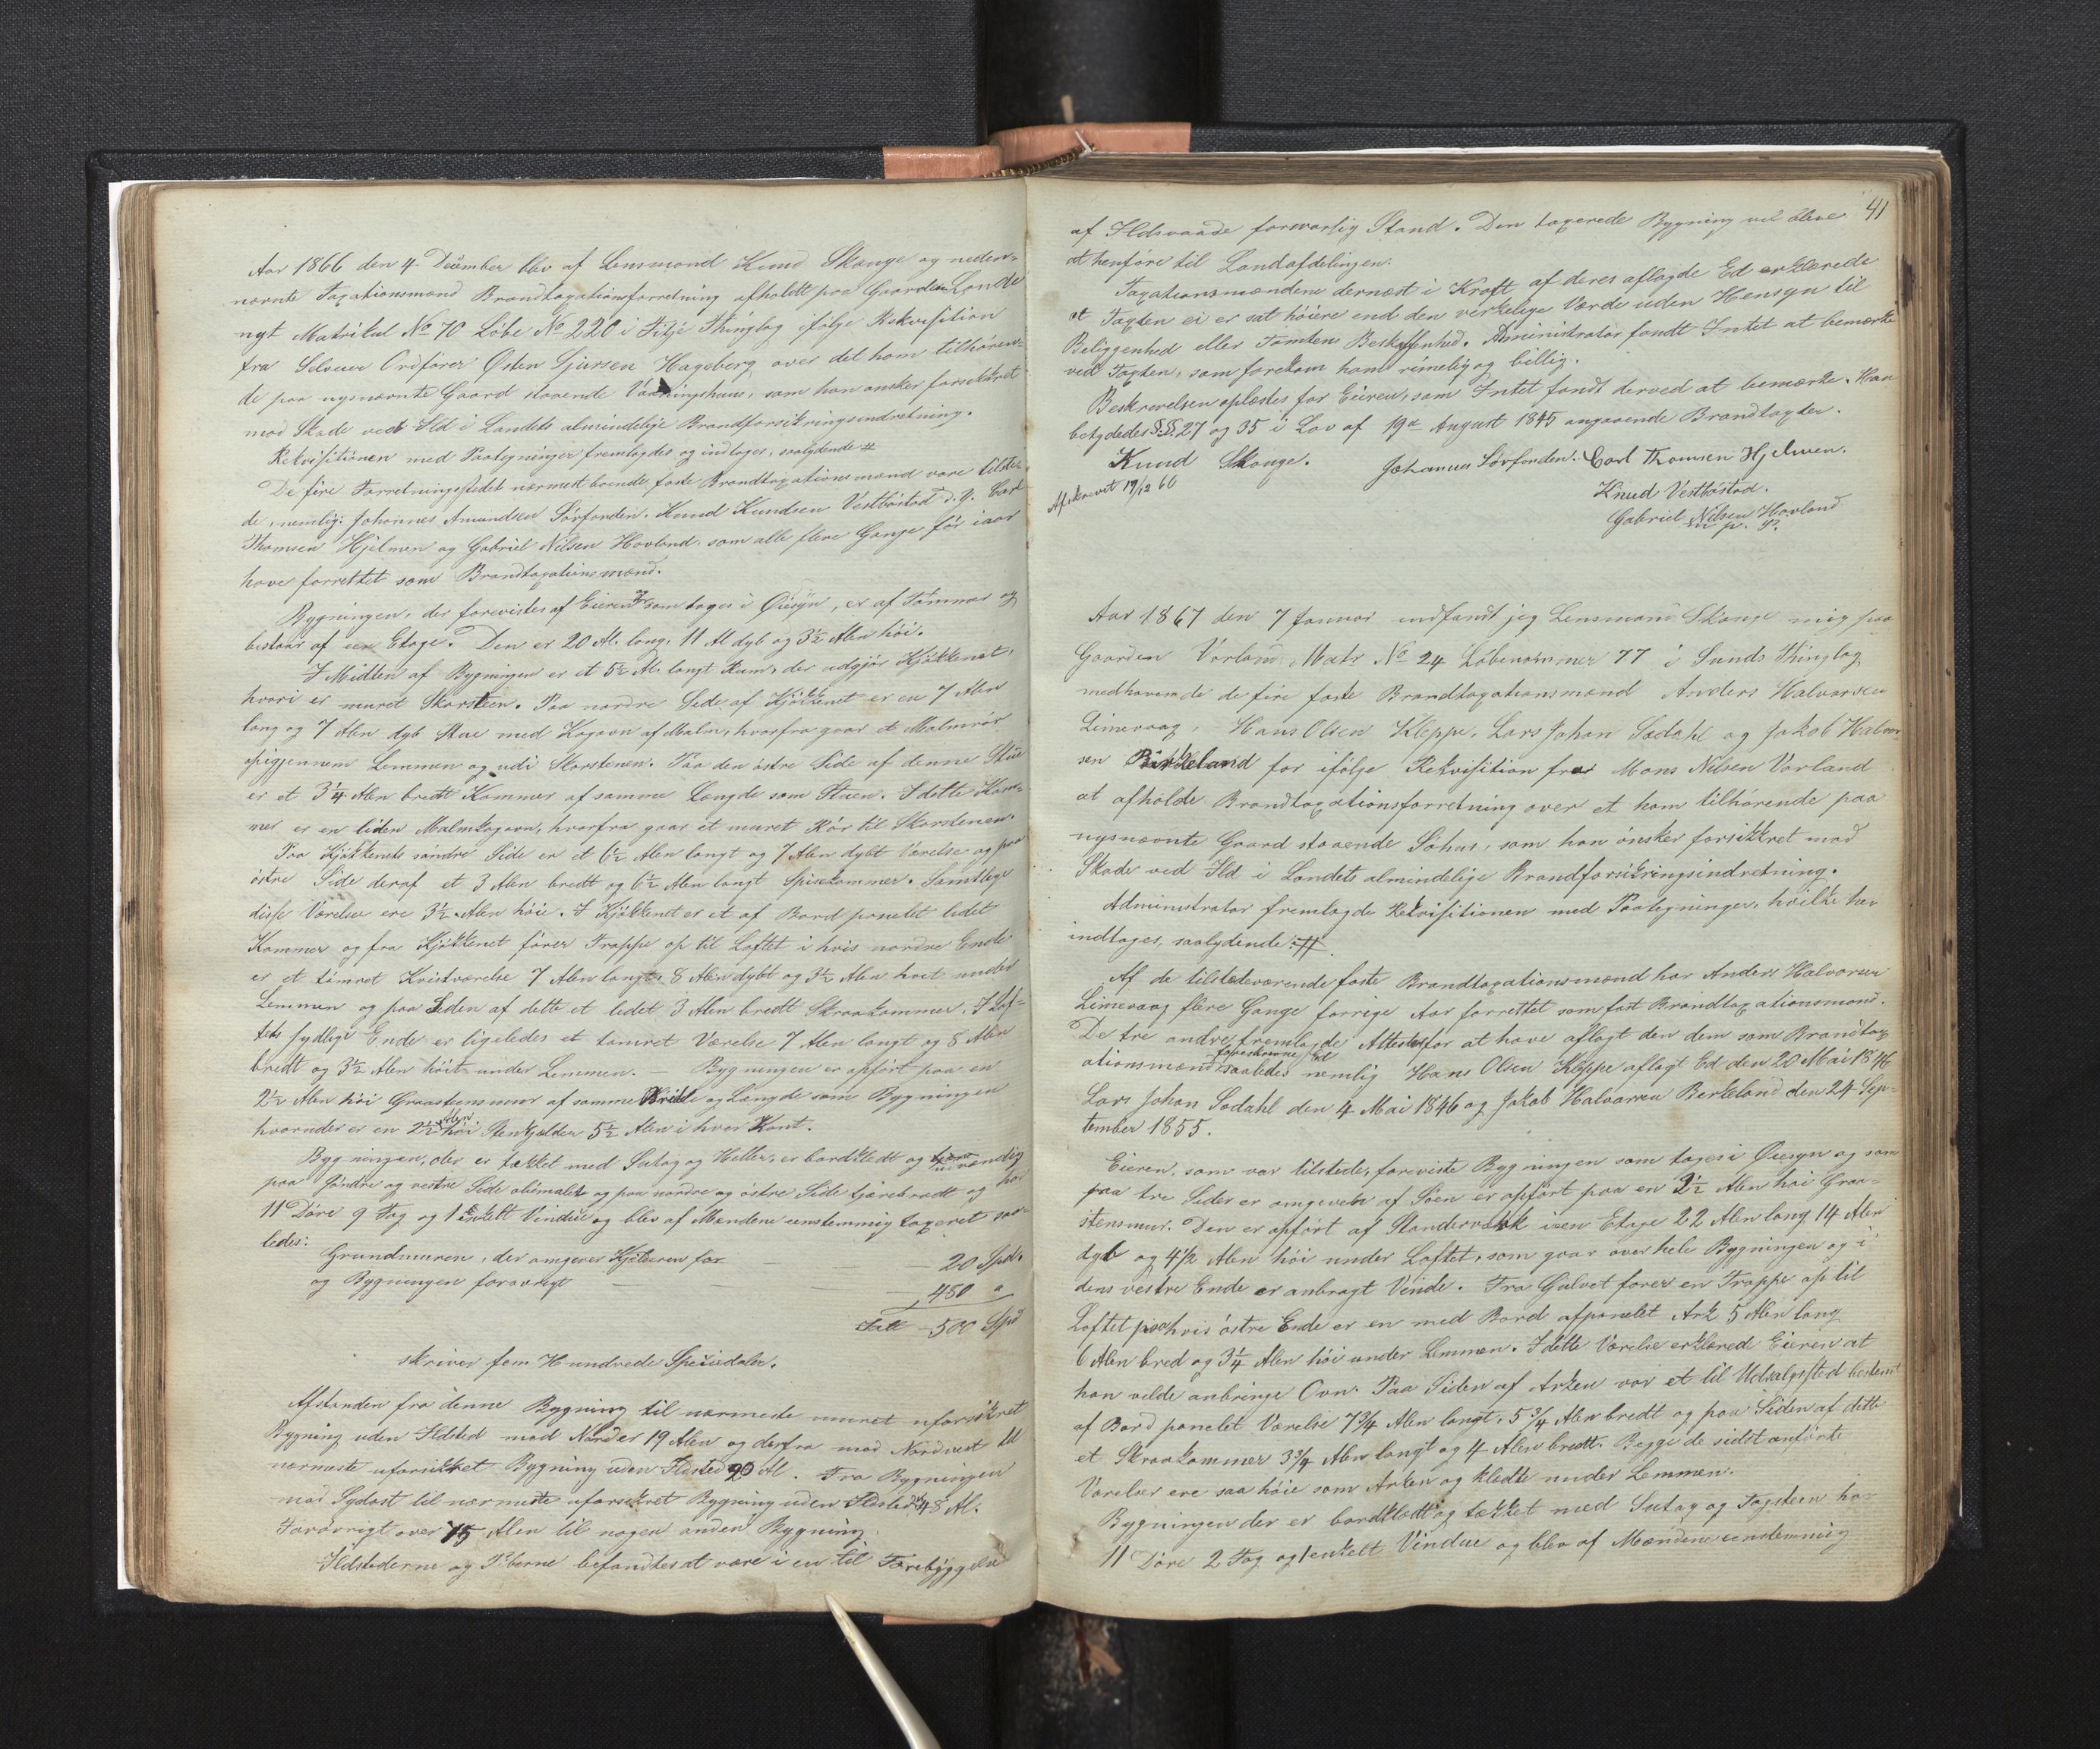 Aar 1866 den 4 December blev af Lensmand Knud Skauge og neden-
nævnte Taxationsmænd Brandtaxationsforretning afholdt paa Gaarden Sande
nyt Matrikul No 70 Löbe No 220 i Fitje Thinglag ifölge Rekvisition
fra Selveier Ordförer Östen Sjursen Hageberg over det ham tilhören-
de paa nysnævnte Gaard staaende Vaaningshuus, som han önsker forsikkret
mod Skade ved Ild i Landets almindelige Brandforsikringsindretning.
Rekvisitionen med Paategninger fremlagdes og indtages, saalydende #
De fire Forretningsstedet nærmest boende faste Brandtaxationsmænd vare tilste-
de, nemlig: Johannes Amundsen Sörfonden. Knud Knudsen Vestböstad d. y. Carl
Thomsen Hjelmen og Gabriel Nilsen Hovland, som alle flere Gange för iaar
have forrettet som Brandtaxationsmænd.
Bygningen, der forevistes af Eieren som toges i Öiesyn, er af Tömmer og
bestaar af een Etage. Den er 20 Al. lang, 11 Al dyb og 3½ Alen höi.
I Midten af Bygningen er et 5½ Al. langt Rum, der udgjör Kjökkenet,
hvori er muret Skorsteen. Paa nordre Side af Kjökkenet er en 7 Alen
lang og 7 Alen dyb Stue med Kogovn af Malm, hvorfra gaar et Malmrör
opigjennem Lemmen og udi Skorstenen. Paa den östre Side af denne Stue
er et 3¼ Alen bredt Kammer af samme Længde som Stuen. I dette Kam-
mer er en liden Malmkogovn, hvorfra gaar et muret Rör til Skorstenen.
Paa Kjökkenets söndre Side er et 6½ Alen langt og 7 Alen dybt Værelse og paa
östre Side deraf et 3 Alen bredt og 6½ Alen langt Spisekammer. Samtlige
disse Værelser ere 3½ Alen höie. I Kjökkenet er et af Bord panelet lidet
Kammer og fra Kjökkenet förer Trappe op til Loftet i hvis nordre Ende
er et tömret Kvistværelse 7 Alen langt, 8 Alen dybt og 3½ Alen höit under
Lemmen og paa Siden af dette et lidet 3 Alen bredt Skraakammer. I Lof-
tets sydlige Ende er ligeledes et tömret Værelse 7 Alen langt og 8 Alen
bredt og 3½ Alen höit under Lemmen. — Bygningen er opfört paa en
2½ Alen höi Graasteensmuur af samme Bredde og Længde som Bygningen
hvorunder er en 2½ Alen höi Stenkjelder 5½ Alen i hver Kant.
Bygningen, der er tækket med Sutag og Heller, er bordklædt og udvændig
paa söndre og vestre Side oliemalet og paa nordre og östre Side tjærebredt og har
11 Döre 9 Fag og 1 enkelt Vindue og blev af Mændene eenstemmig taxeret saa-
ledes:
Grundmuren, der omgiver Kjelderen for — — 20 Spd.
og Bygningen forövrigt — — — 480 "
Talt — 500 Spd
skriver fem Hundrede Speciedaler.
Afstanden fra denne Bygning til nærmeste muret uforsikret
Bygning uden Ildsted mod Nord er 19 Alen og derfra mod Nordvest til
nærmeste uforsikkret Bygning uden Ildsted 90 Al. Fra Bygningen
mod Sydost til nærmeste uforsikret Bygning uden Ildsted 48 Al.
Forövrigt over 75 Alen til nogen anden Bygning.
Ildstederne og Piberne befandtes at være i en til Forebyggelse
41
af Ildsvaade forsvarlig Stand. Den taxerede Bygning vil blive
at henföre til Landafdelingen.
Taxationsmændene dernæst i Kraft af deres aflagde Ed erklærede
at Taxten ei er sat höiere end den virkelige Værde uden Hensyn til
Beliggenhed eller Tomtens Beskaffenhed. Administrator fandt Intet at bemærke
ved Taxten, som forekom ham rimelig og billig.
Beskrivelsen oplæstes for Eieren, som Intet fandt derved at bemærke. Han
betydedes §.§. 27 og 35 i Lov af 19de August 1845 angaaende Brandtaxter.
Knud Skauge. Johannes Sörfonden. Carl Thomsen Hjelmen.
Afskrevet 19/12 66
Knud Vestböstad.
Gabriel Nilsen Hovland
m. p. P.
Aar 1867 den 7 Januar indfandt jeg Lensmand Skauge mig paa
Gaarden Vorland Matr No 24 Löbenummer 77 i Sunds Thinglag
medhavende de fire faste Brandtaxationsmænd Anders Halvorsen
Limevaag, Hans Olsen Kleppe, Lars Johan Sædahl og Jakob Halvor-
sen Birkeland for ifölge Rekvisition fra Mons Nilsen Vorland
at afholde Brandtaxationsforretning over et ham tilhörende paa
nysnævnte Gaard staaende Söhus, som han önsker forsikkret mod
Skade ved Ild i Landets almindelige Brandforsikringsindretning.
Administrator fremlagde Rekvisitionen med Paategninger, hvilke her
indtages, saalydende: #
Af de tilstedeværende faste Brandtaxationsmænd har Anders Halvorsen
Limevaag flere Gange forrige Aar forrettet som fast Brandtaxationsmand.
De tre andre fremlagde Attester for at have aflagt den dem som Brandtax-
ationsmænd foreskrevne Ed saaledes nemlig Hans Olsen Kleppe aflagt Ed den 20 Mai 1846
Lars Johan Sædahl den 4 Mai 1846 og Jakob Halvorsen Berkeland den 24 Sep-
tember 1855.
Eieren, som var tilstede, foreviste Bygningen som toges i Öiesyn og som
paa tre Sider er omgiven af Söen er opfört paa en 2½ Alen höi Graa-
stensmur. Den er opfört af Standerværk i een Etage 22 Alen lang 14 Alen
dyb og 4½ Alen höi under Loftet, som gaar over hele Bygningen og i
dens vestre Ende er anbragt Vinde. Fra Gulvet förer en Trappe op til
Loftet paa hvis östre Ende er en med Bord afpanelet Ark 5 Alen lang
6 Alen bred og 3¼ Alen höi under Lemmen. I dette Værelse erklæred Eieren at
han vilde anbringe Ovn. Paa Siden af Arken var et til Udsalgssted bestemt
af Bord panelet Værelse 7¾ Alen langt, 5¾ Alen bredt og paa Siden af dette
et Skraakammer 3¾ Alen langt og 4 Alen bredt. Begge de sidst anförte
Værelser ere saa höie som Arken og klædte under Lemmen.
Bygningen der er bordklædt og tækket med Sutag og Tagsteen har
11 Döre 2 Fag og 1 enkelt Vindue og blev af Mændene eenstemmig